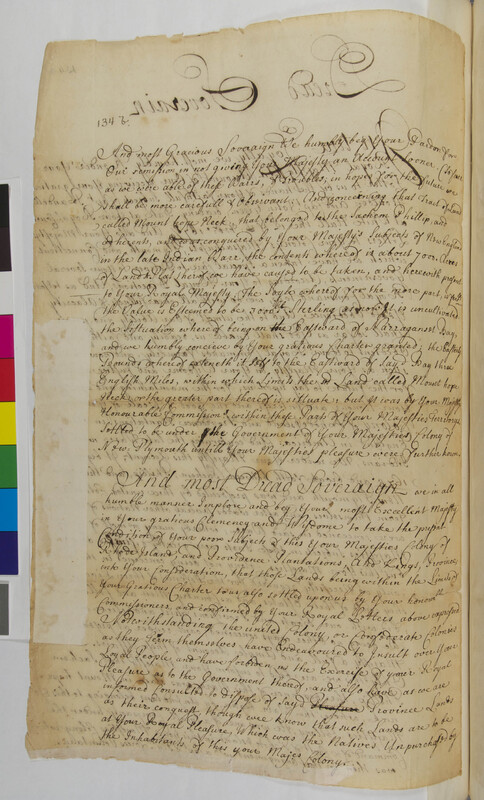 Dread Soveraign
1348.
And most Gracious Soveraign We humbly beg Your Pardon for
Our omission in not giving Your Majesty an Account sooner
as we were able of these Affairs, in hopes for the future we
shall be more carefull & observant. And concerning that Tract of Land
called Mount hope Neck, that belonged to the Sachem Phillip, and
adherents, and conquered by Your Majesties Subjects of New England
in the late Indian Warr, the contents whereof is about 7000 Acres
of Land, a Plat thereof we have caused to be taken, and herewith present
to Your Royal Majesty, The Soyle whereof for the more part is
the Value is Esteemed to be 3000 Sterling as it is uncultivated
the scituation whereof being on the Eastward of Narraganset Bay,
and we humbly conceive by Your gratious Charter granted, the Easterly
bounds whereof extendeth to the Eastward of sayd Bay three
English Miles, within which Limits the Land called Mount hope
Neck or the greater part thereof is situate, but it was by Your Majesties
Honourable Commission within these Parts of Your Majesties
settled to be under the Government of Your Majesties Colony of
New Plymouth untill Your Majesties pleasure were further known
And most Dread Soveraign we in all
humble manner Implore and beg Your most Excellent Majesty
in Your gratious Clemency and Wisdome to take the present
Condition of Your poor Subjects of this Your Majesties Colony of
Rhode Island, and Providence Plantations And Kings Province
into Your Consideration, that those Lands being within the Limits of
Your Gratious Charter to us also settled upon us by Your honourable
Commissioners and confirmed by Your Royal Letters above expressed
Notwithstanding the united Colony, or Confederate Colonies
as they Term themselves have Endeavoured to Insult over Your
Loyal People and have forbiden us the Exercise of your Royal
Pleasure as to the Government thereof and also have as we are
informed Consulted to dispose of sayd Province Lands
as their conquest, though wee know that such Lands are to be
at Your Royal Pleasure, which was the Natives Unpurchased by
the Inhabitants of this your Majes Colony.